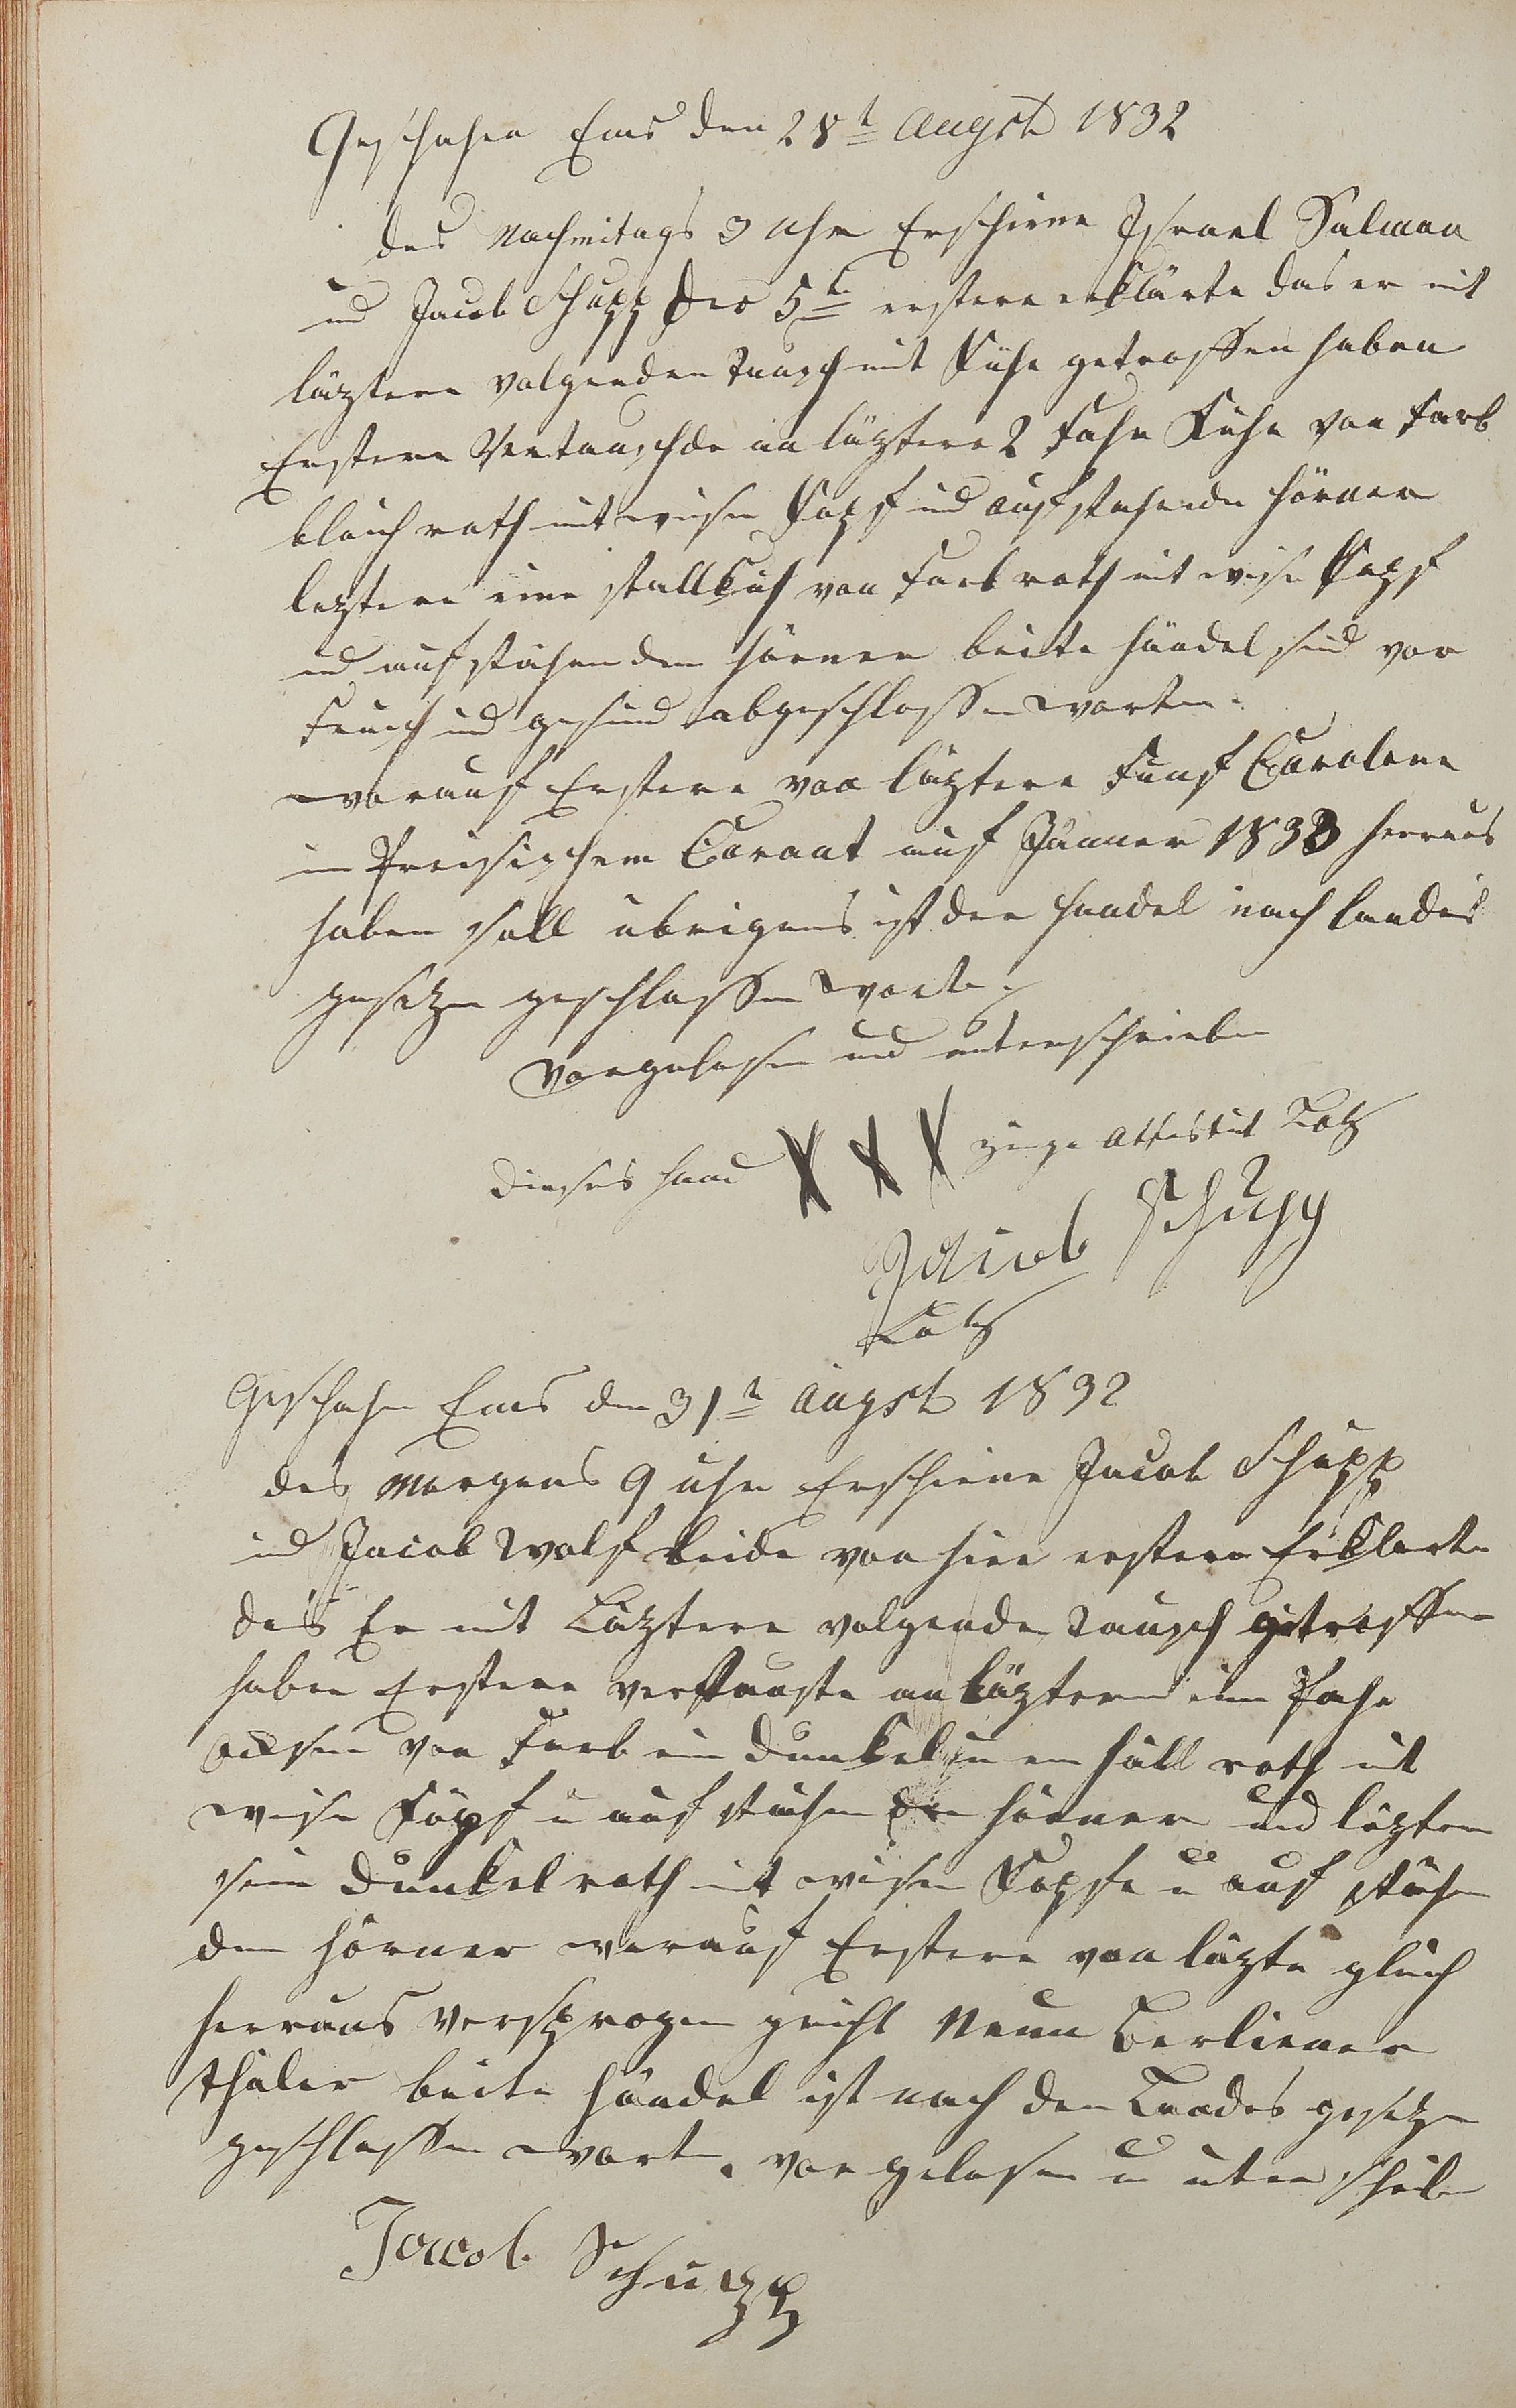 Geschehen Ems den 28t Augst 1832
des Nachmitags 3 Uhr Erschiene Israel Salman
und Jacob Schupp der 5t erstere erklärte das er mit
läztere volgenden Tausch mit Kühe getroffen haben
Erstere Vertauschde an läztere 2 Fahr Kühe von Farb
bleich roth mit weise Kopf und aufstehende Hörner
leztere eine stallkuh von Farb roth mit weise Kopf
und aufstehenden Hörner beite Händel sind vor
Frisch und gesund abgeschlossen worten.
worauf Erstere von läztere Funf Carolene
in Preisischem Corant auf Jänner 1833 herraus
haben soll übrigens ist der Handel nach landes
gesezen geschlossen worte.
Vorgelesen und unterschrieben
dieses Hand XXX zeige attestirt Lotz
Jacob Schupp
Lotz
Geschehen Ems den 31t Augst 1832
des Morgens 9 uhr Erschiene Jacob Schupp
und Jacob Wolf beide von hier erstere Erklerte
das Er mit Läztere volgende Tausch getroffen
haben Erstere vertauste an läztere ein Fahr
ocksen von Farb ein dunkel u ein häll roth mit
weise Köpf u auf stehen den Hörner und läztere
sein dunkel roth mit weisen Kopfe u auf stehen
den Hörner worauf Erstere von läzte gleich
herraus versprogen Neun Berliener
thaler beite Händel ist nach den Landes gesezen
geschlossen worten. vor gelesen u unter schrieben
Jacob Schupp